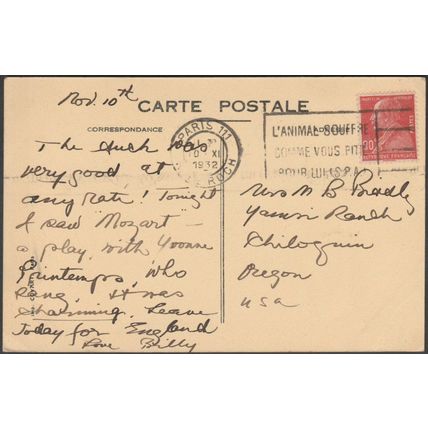 Nov. 10th
CARTE POSTALE
CORRESPONDANCE
The duck was
very good at
any rate! Tonight
I saw Mozart –
a play, with Yvonne
Printemps, who
sang. It was
charming. Leave
today for England
Love Billy
PARIS 111
XI
1932
ROCH
L'ANIMAL SOUFFRE
COMME VOUS PITIE
POUR LUI S.P.A.
Mrs M B Bradly
Yamsi Ranch
Chiloquin
Oregon
USA